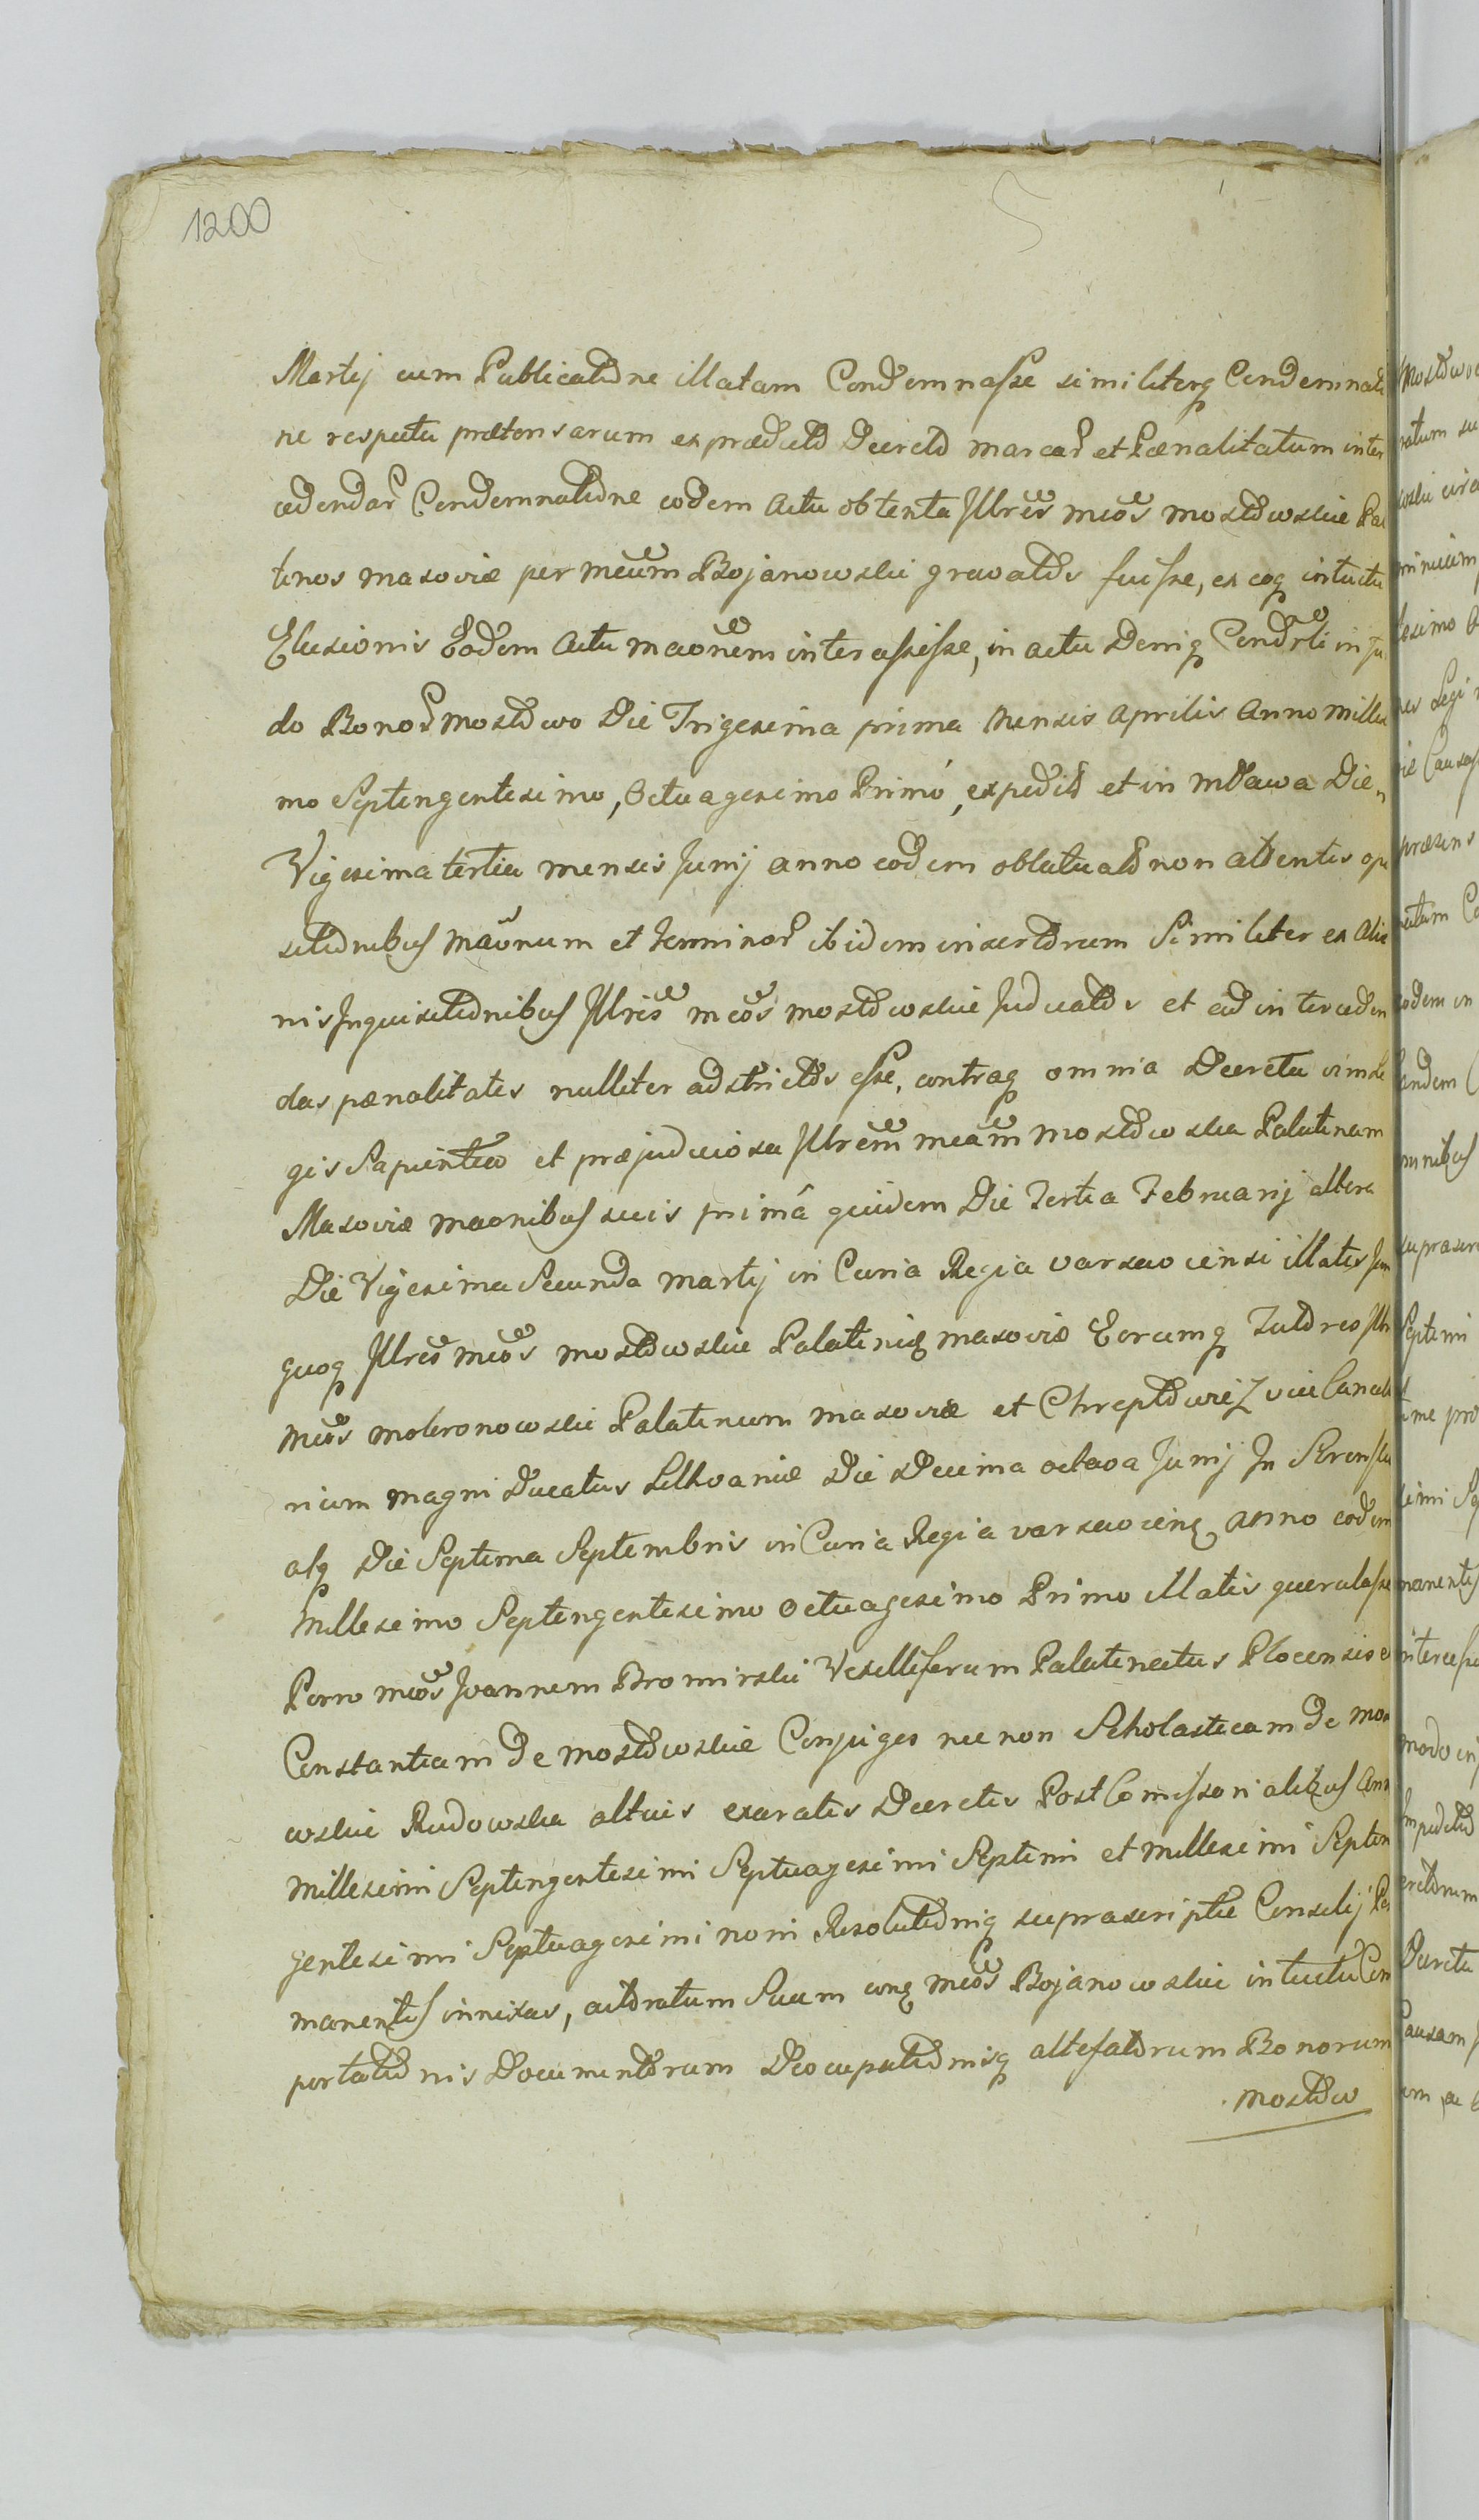 1200
Martij cum Publicatõne illatam Condemnasse similiterq Condemnati
ne respectu prætensarum ex prædicto Decreto marcar et Pænalitatum inter
cedendar Condemnatione eodem Actu obtenta Illres mcos mostowskie Pal
tinos masoviæ per mcum Bojanowski gravatos fuisse, ex eoq intuitu
Elusionis Eodem Actu maonem intercessisse, in actu Deniq Condrti in
do Bonor mostowo Die Trigesima prima mensis Aprilis Anno milles
mo Septingentesimo, Octuagesimo Primo, expedito et in mława Die
Vigesima tertia mensis Junij anno eodem oblatuato non attentis op
sitionibus maonum et terminor ibidem insertorum Similiter ex Alie
nis Inquisitionibus Illres mcos mostowskie Judicatos et ad interceden
das pænalitates nulliter adstrictos esse, contraq omnia Decreta vim le
gis Sapientia et præjudiciosa Illrem mcam mostowska Palatinam
Masoviæ maonibus suis primâ quidem Die Tertia Februarij altera
Die Vigesima Secunda martij in Curia Regia varsaviensi illatis
quoq Illres mcos mostowskie Palatiniq masoviæ Eorumq Tutores Illr
mcos mokronowski Palatinum masoviæ et Chreptowicz vice Cancella
rium magni Ducatus Lithvaniæ Die Decima octava Junij In Srensk
atq Die Septima Septembris in Curia Regia varsavienq anno eodem
millesimo Septingentesimo octuagesimo Primo illatis querulasse
Porro mcos Joannem Bromirski Vexilliferum Palatinatus Plocensis e
Constantiam de mostowskie Conjuges nec non Scholasticam de mos
wskie Rudowska altius exaratis Decretis Post Comissorialibus Ann
millesimi Septingentesimi Septuagesimi Septimi et millesimi Septin
gentesimi Septuagesimi noni Resolutioniq suprascriptæ Consilij Per
manentis innixas, actoratum Suum conq mcos Bojanowskie intuitu Com
portationis Documentorum Deocupationisq altefatorum Bonorum
mostow